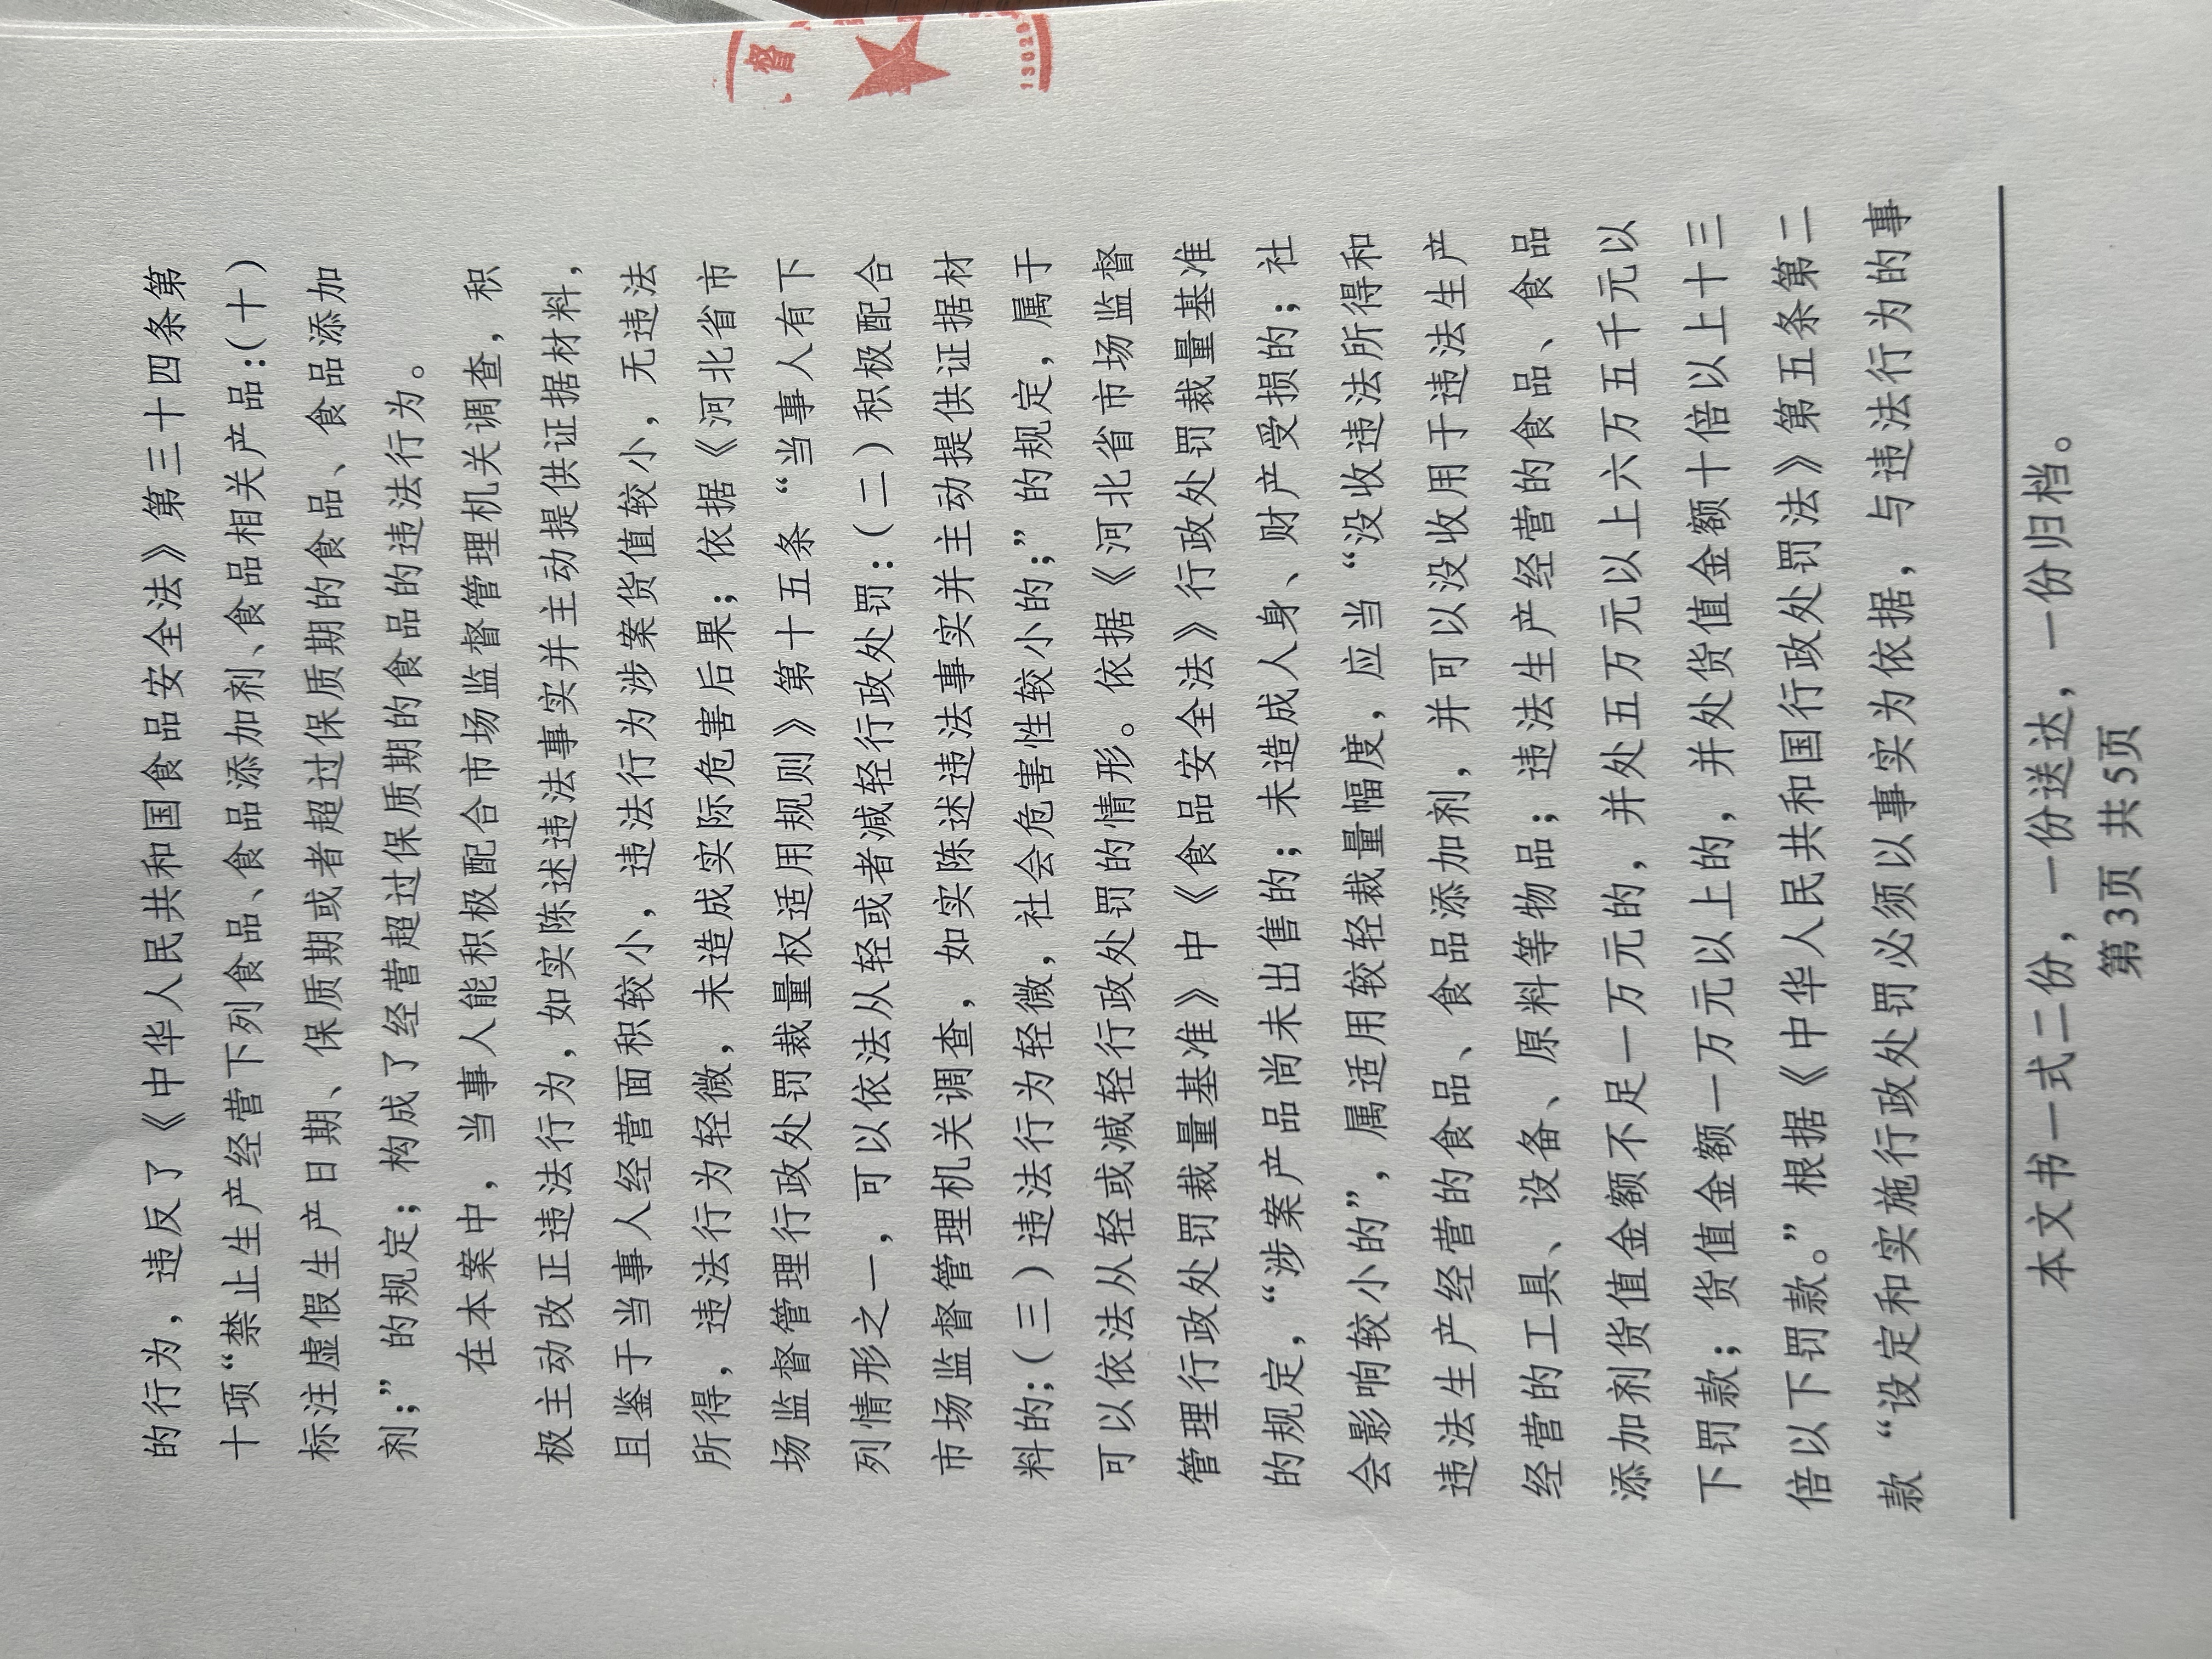 的行为，违反了《中华人民共和国食品安全法》第三十四条第
十项“禁止生产经营下列食品、食品添加剂、食品相关产品：（十）
标注虚假生产日期、保质期或者超过保质期的食品、食品添加
剂；”的规定；构成了经营超过保质期的食品的违法行为。
在本案中，当事人能积极配合市场监督管理机关调查，积
极主动改正违法行为，如实陈述违法事实并主动提供证据材料，
且鉴于当事人经营面积较小，违法行为涉案货值较小，无违法
所得，违法行为轻微，未造成实际危害后果；依据《河北省市
场监督管理行政处罚裁量权适用规则》第十五条“当事人有下
列情形之一，可以依法从轻或者减轻行政处罚：（二）积极配合
市场监督管理机关调查，如实陈述违法事实并主动提供证据材
料的；（三）违法行为轻微，社会危害性较小的；”的规定，属于
可以依法从轻或减轻行政处罚的情形。依据《河北省市场监督
管理行政处罚裁量基准》中《食品安全法》行政处罚裁量基准
的规定，“涉案产品尚未出售的；未造成人身、财产受损的；社
会影响较小的”，属适用较轻裁量幅度，应当“没收违法所得和
违法生产经营的食品、食品添加剂，并可以没收用于违法生产
经营的工具、设备、原料等物品；违法生产经营的食品、食品
添加剂货值金额不足一万元的，并处五万元以上六万五千元以
下罚款；货值金额一万元以上的，并处货值金额十倍以上十三
倍以下罚款。”根据《中华人民共和国行政处罚法》第五条第二
款“设定和实施行政处罚必须以事实为依据，与违法行为的事
本文书一式二份，一份送达，一份归档。
第3页 共5页
督